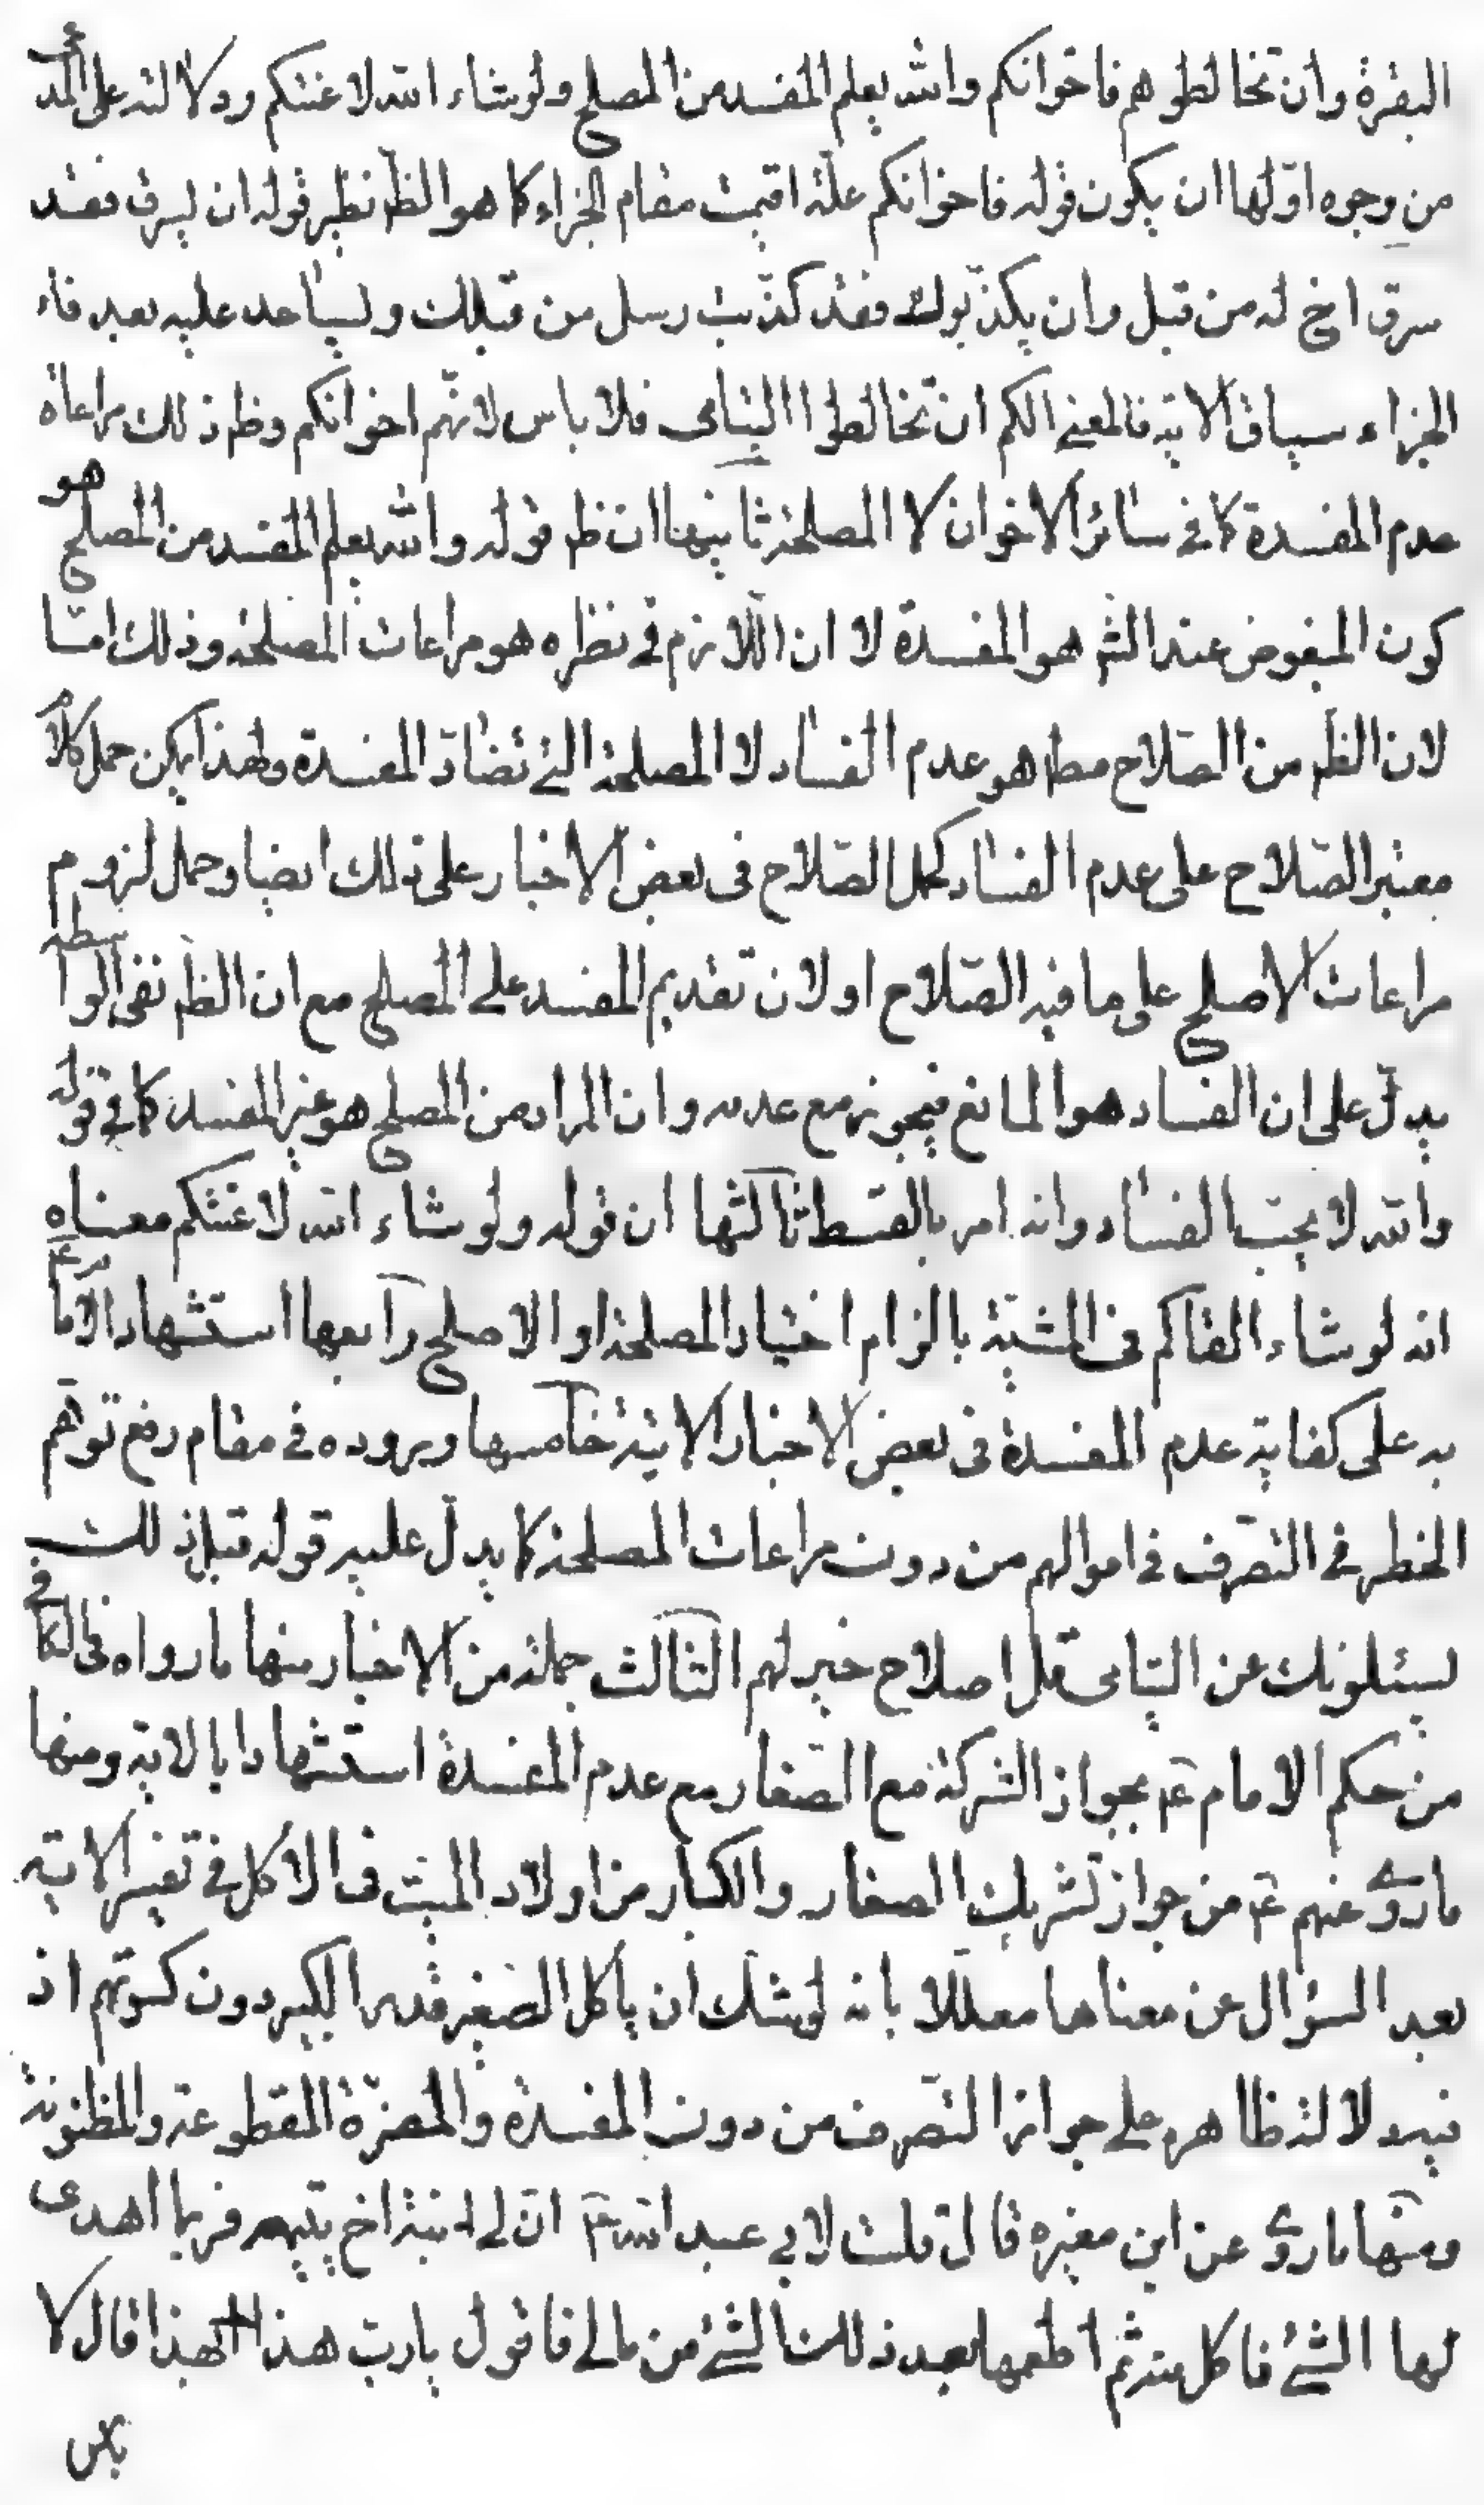 البقرة وان تخالطوهم فاخوانكم والله يعلم المفسد من المصلح ولو شاء الله لاعنتكم ودلالته على المدعى
من وجوه اوّلها ان يكون قوله فاخوانكم علّة اقيمت مقام الجزاء كما هو الظ نظير قوله ان يسرق فقد
سرق اخ له من قبل وان يكذّبوك فقد كذّبت رسل من قبلك ويساعد عليه بعد فاء
الجزاء سياق الاية فالمعنى انكم ان تخالطوا اليتامى فلا باس لانّهم اخوانكم وظ ذلك مراعاة
عدم المفسدة كما فى سائر الاخوان لا المصلحة ثانيها ان ظ قوله والله يعلم المفسد من المصلح هو
كون المبغوض عند الشم هو المفسدة لا ان اللازم فى نظره هو مراعات المصلحة وذلك امّا
لان الظ من الصّلاح مط هو عدم الفساد لا المصلحة التى تضادّ المفسدة ولهذا يمكن حمل كلام
معتبر الصّلاح على عدم الفساد كحمل الصّلاح فى بعض الاخبار على ذلك ايضا وحمل لزوم
مراعات الاصلح على ما فيه الصّلاح او لان تقديم المفسد على المصلح مع ان الظ نفى الواسطة
يدلّ على ان الفساد هو المانع فيجوز مع عدمه وان المراد من المصلح هو غير المفسد كما فى قوله
والله لا يحب الفساد وانه امر بالقسط ثالثها ان قوله ولو شاء الله لاعنتكم معناه
انه لو شاء القاكم فى المشقّة بالزام اختيار المصلحة او الاصلح رابعها استشهاد الامام ع
به على كفاية عدم المفسدة فى بعض الاخبار الاتية خامسها وروده فى مقام رفع توهّم
الخطر فى التصرّف فى اموالهم من دون مراعات المصلحة كما يدلّ عليه قوله قبل ذلك
يسئلونك عن اليتامى قل اصلاح خير لهم الثالث جملة من الاخبار منها ما رواه فى الكافى
من حكم الامام ع بجواز الشركة مع الصّغار مع عدم المفسدة استشهادا بالاية ومنها
ما روى عنهم ع من جواز تشريك الصغار والكبار من اولاد الميّت فى الاكل فى تفسير الاية
بعد السؤال عن معناها معلّلا بانه يوشك ان ياكل الصّغير قدر الكبير دون كسوتهم اذ
فيه دلالة ظاهرة على جواز التصرّف من دون المفسدة والمضرّة المقطوعة والمظنونة
ومنها ما روى عن ابن مغيره قال قلت لابى عبد الله ع انّ لى ابنة اخ يتيمه فربما اهدى
لها الشئ فاكل منه ثم اطعمها بعد ذلك الشئ من مالى فاقول يا ربّ هذا بهذا قال لا
باس